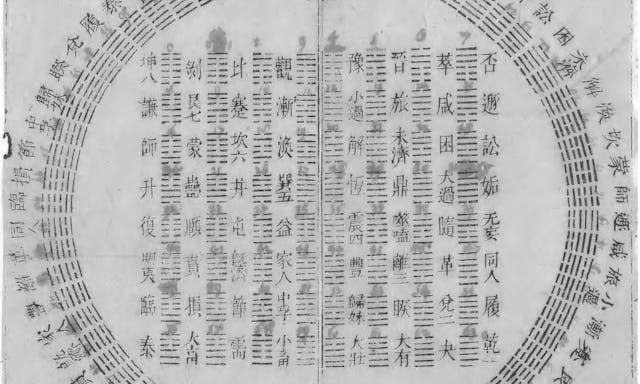 否遯訟姤无妄同人履乾一
萃咸困大過隨革兌二夬
晉旅未濟鼎噬嗑離三睽大有
豫小過解恆震四豐歸妹大壯
觀漸渙巽五益家人中孚小畜
比蹇坎六井屯既濟節需
剝艮七蒙蠱頤賁損大畜
坤八謙師升復明夷臨泰
訟困未濟解渙坎蒙師遯咸旅小過漸蹇艮
泰履兌睽歸妹中孚節損臨同人革離豐家人